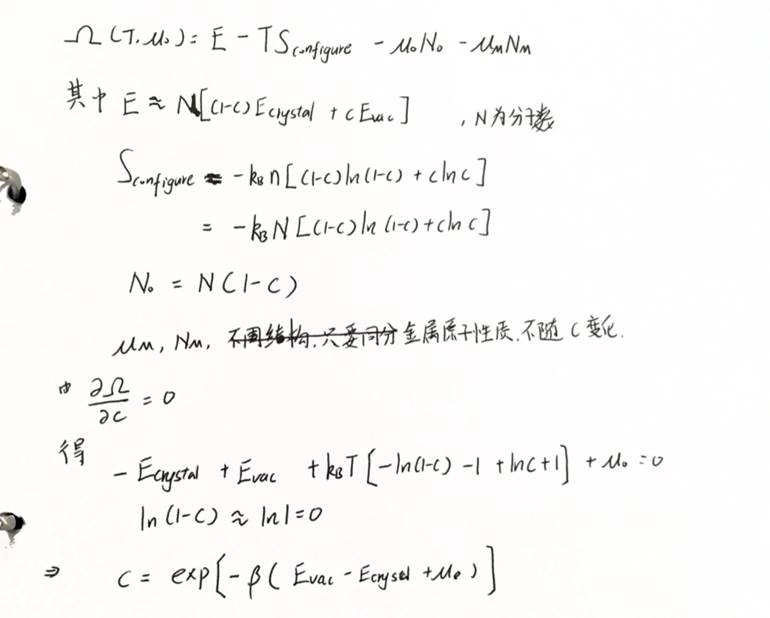 Ω(T.μ₀) = E - TSconfigure - μ₀N₀ - μmNm
其中 E ≈ N[(1-c)Ecrystal + cEvac] , N为分子数
Sconfigure ≈ -kBn[(1-c)ln(1-c) + clnc]
= -kBN[(1-c)ln(1-c)+clnc]
N₀ = N(1-C)
μm, Nm, 不同结构.只要同分金属原子性质.不随C变化.
由 ∂Ω/∂c = 0
得 -Ecrystal + Evac + kBT[-ln(1-c) -1 + lnc+1] + μ₀ = 0
ln(1-c) ≈ ln1 = 0
⇒ C = exp[-β(Evac - Ecrystal + μ₀)]